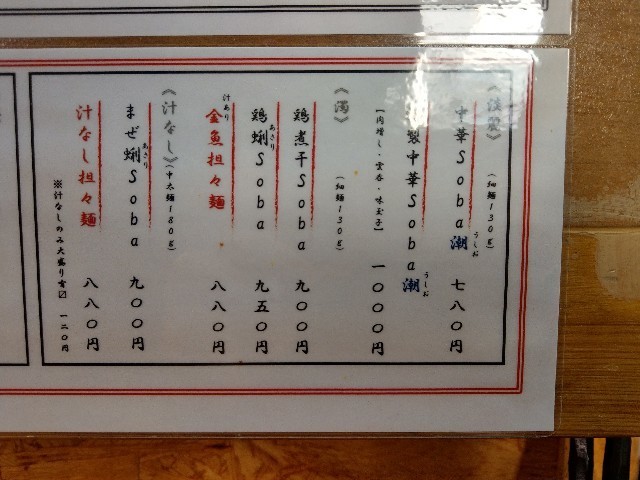 (細麺130g)
中華Soba潮 七八〇円
うしお
製中華Soba潮 一〇〇〇円
うしお
【肉増し・雲呑・味玉子】
《濁》
(細麺130g)
鶏煮干Soba 九〇〇円
鶏蜊Soba 九五〇円
あさり
汁あり
金魚担々麺 八八〇円
《汁なし》(中太麺180g)
まぜ蜊Soba 九〇〇円
あさり
汁なし担々麺 八八〇円
※汁なしのみ大盛り有〼 一二〇円